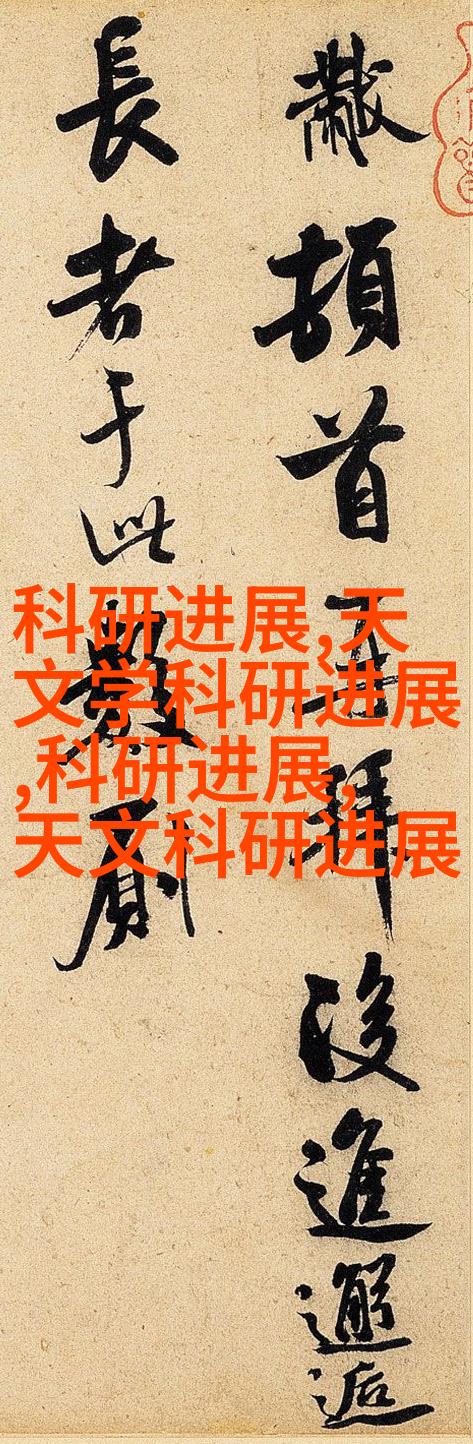 黻頓首再拜後進邂逅
長者于此數廁
科研进展,天
文学科研进展
,科研进展,
天文科研进展